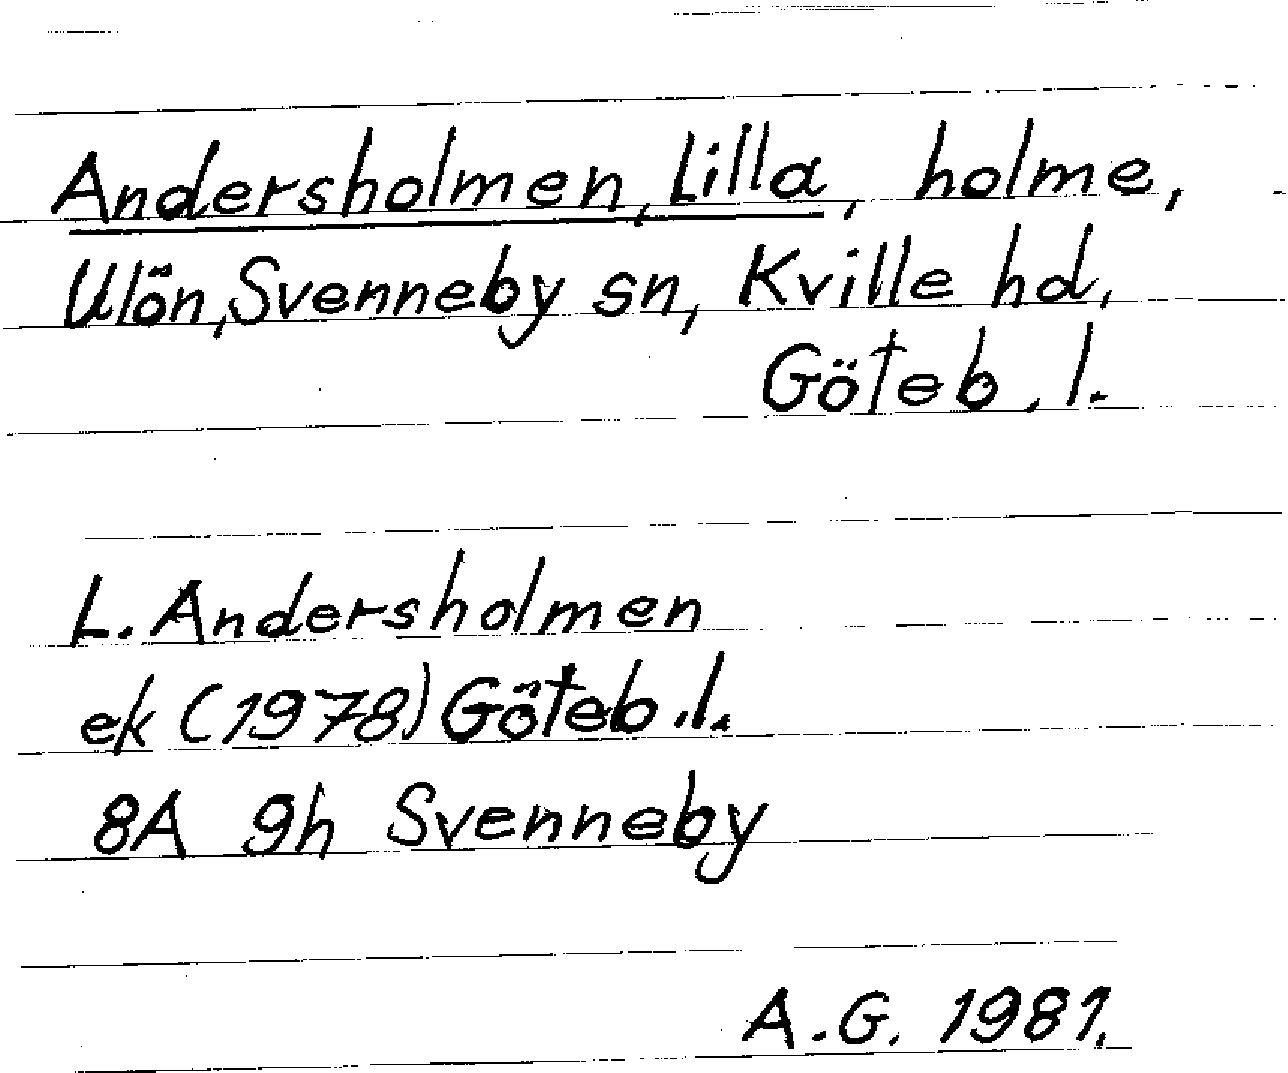 Andersholmen, Lilla, holme,
Ulön, Svenneby sn, Kville hd,
Göteb. l.
L. Andersholmen
ek (1978) Göteb. l.
8A 9h Svenneby
A.G. 1981.